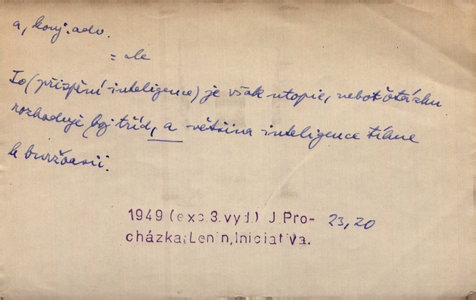 a, konj. adv.
= ale
To (přispění inteligence) je však utopie, neboť otázku
rozhoduje boj tříd, a většina inteligence tíhne
k buržoasii.
1949 (exc 3.vyd.) J.Pro-
cházka:Lenin,Iniciativa.
23,20